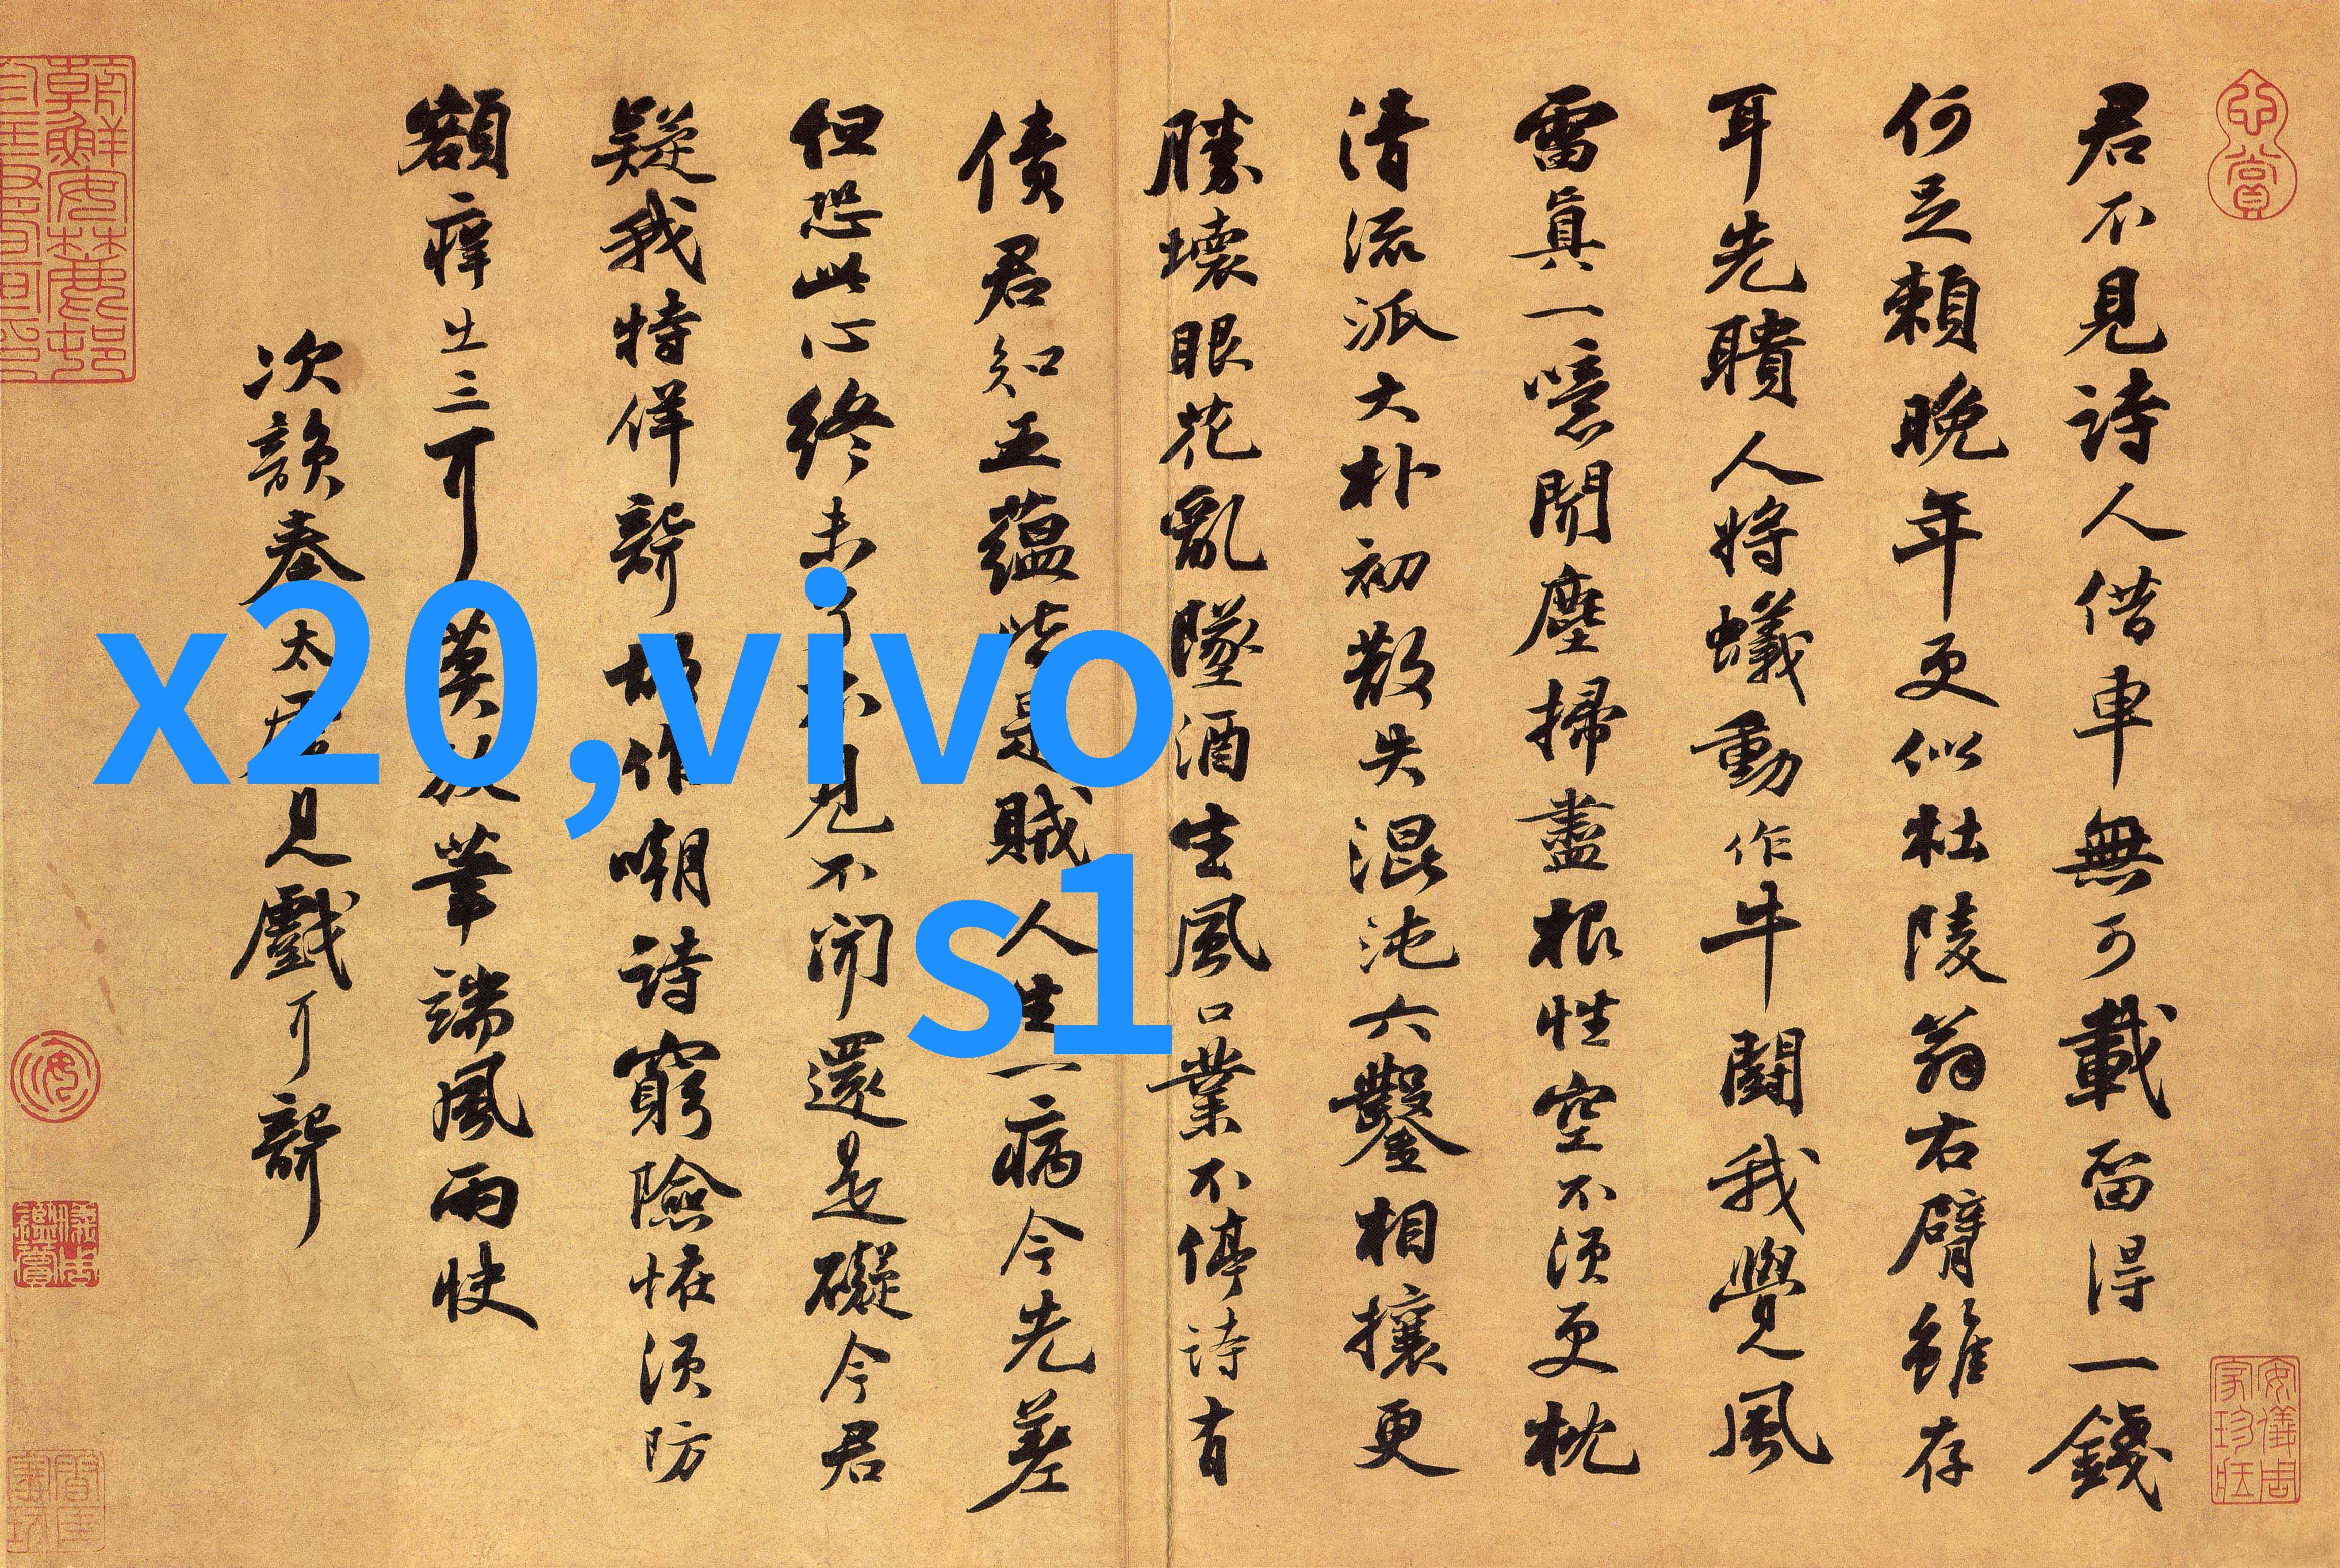 心賞
君不見詩人借車無可載留得一錢
何足賴晚年更似杜陵翁右臂雖存
耳先聵人將蟻動作牛鬪我覺風
雷真一噫聞塵掃盡根性空不須更枕
清流派大朴初散失混沌六鑿相攘更
勝壞眼花亂墜酒生風口業不停詩有
債君知五蘊皆是賊人生一病今先差
但恐此心終未了不見不聞還是礙今君
疑我特佯聾故作嘲詩窮險怪須防
額痒出三耳莫放筆端風雨快
次韻秦太虛見戲耳聾
安儀周家珍藏
x20,vivo
s1